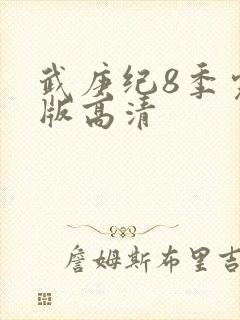 武庚纪8季
版高清
詹姆斯布里吉